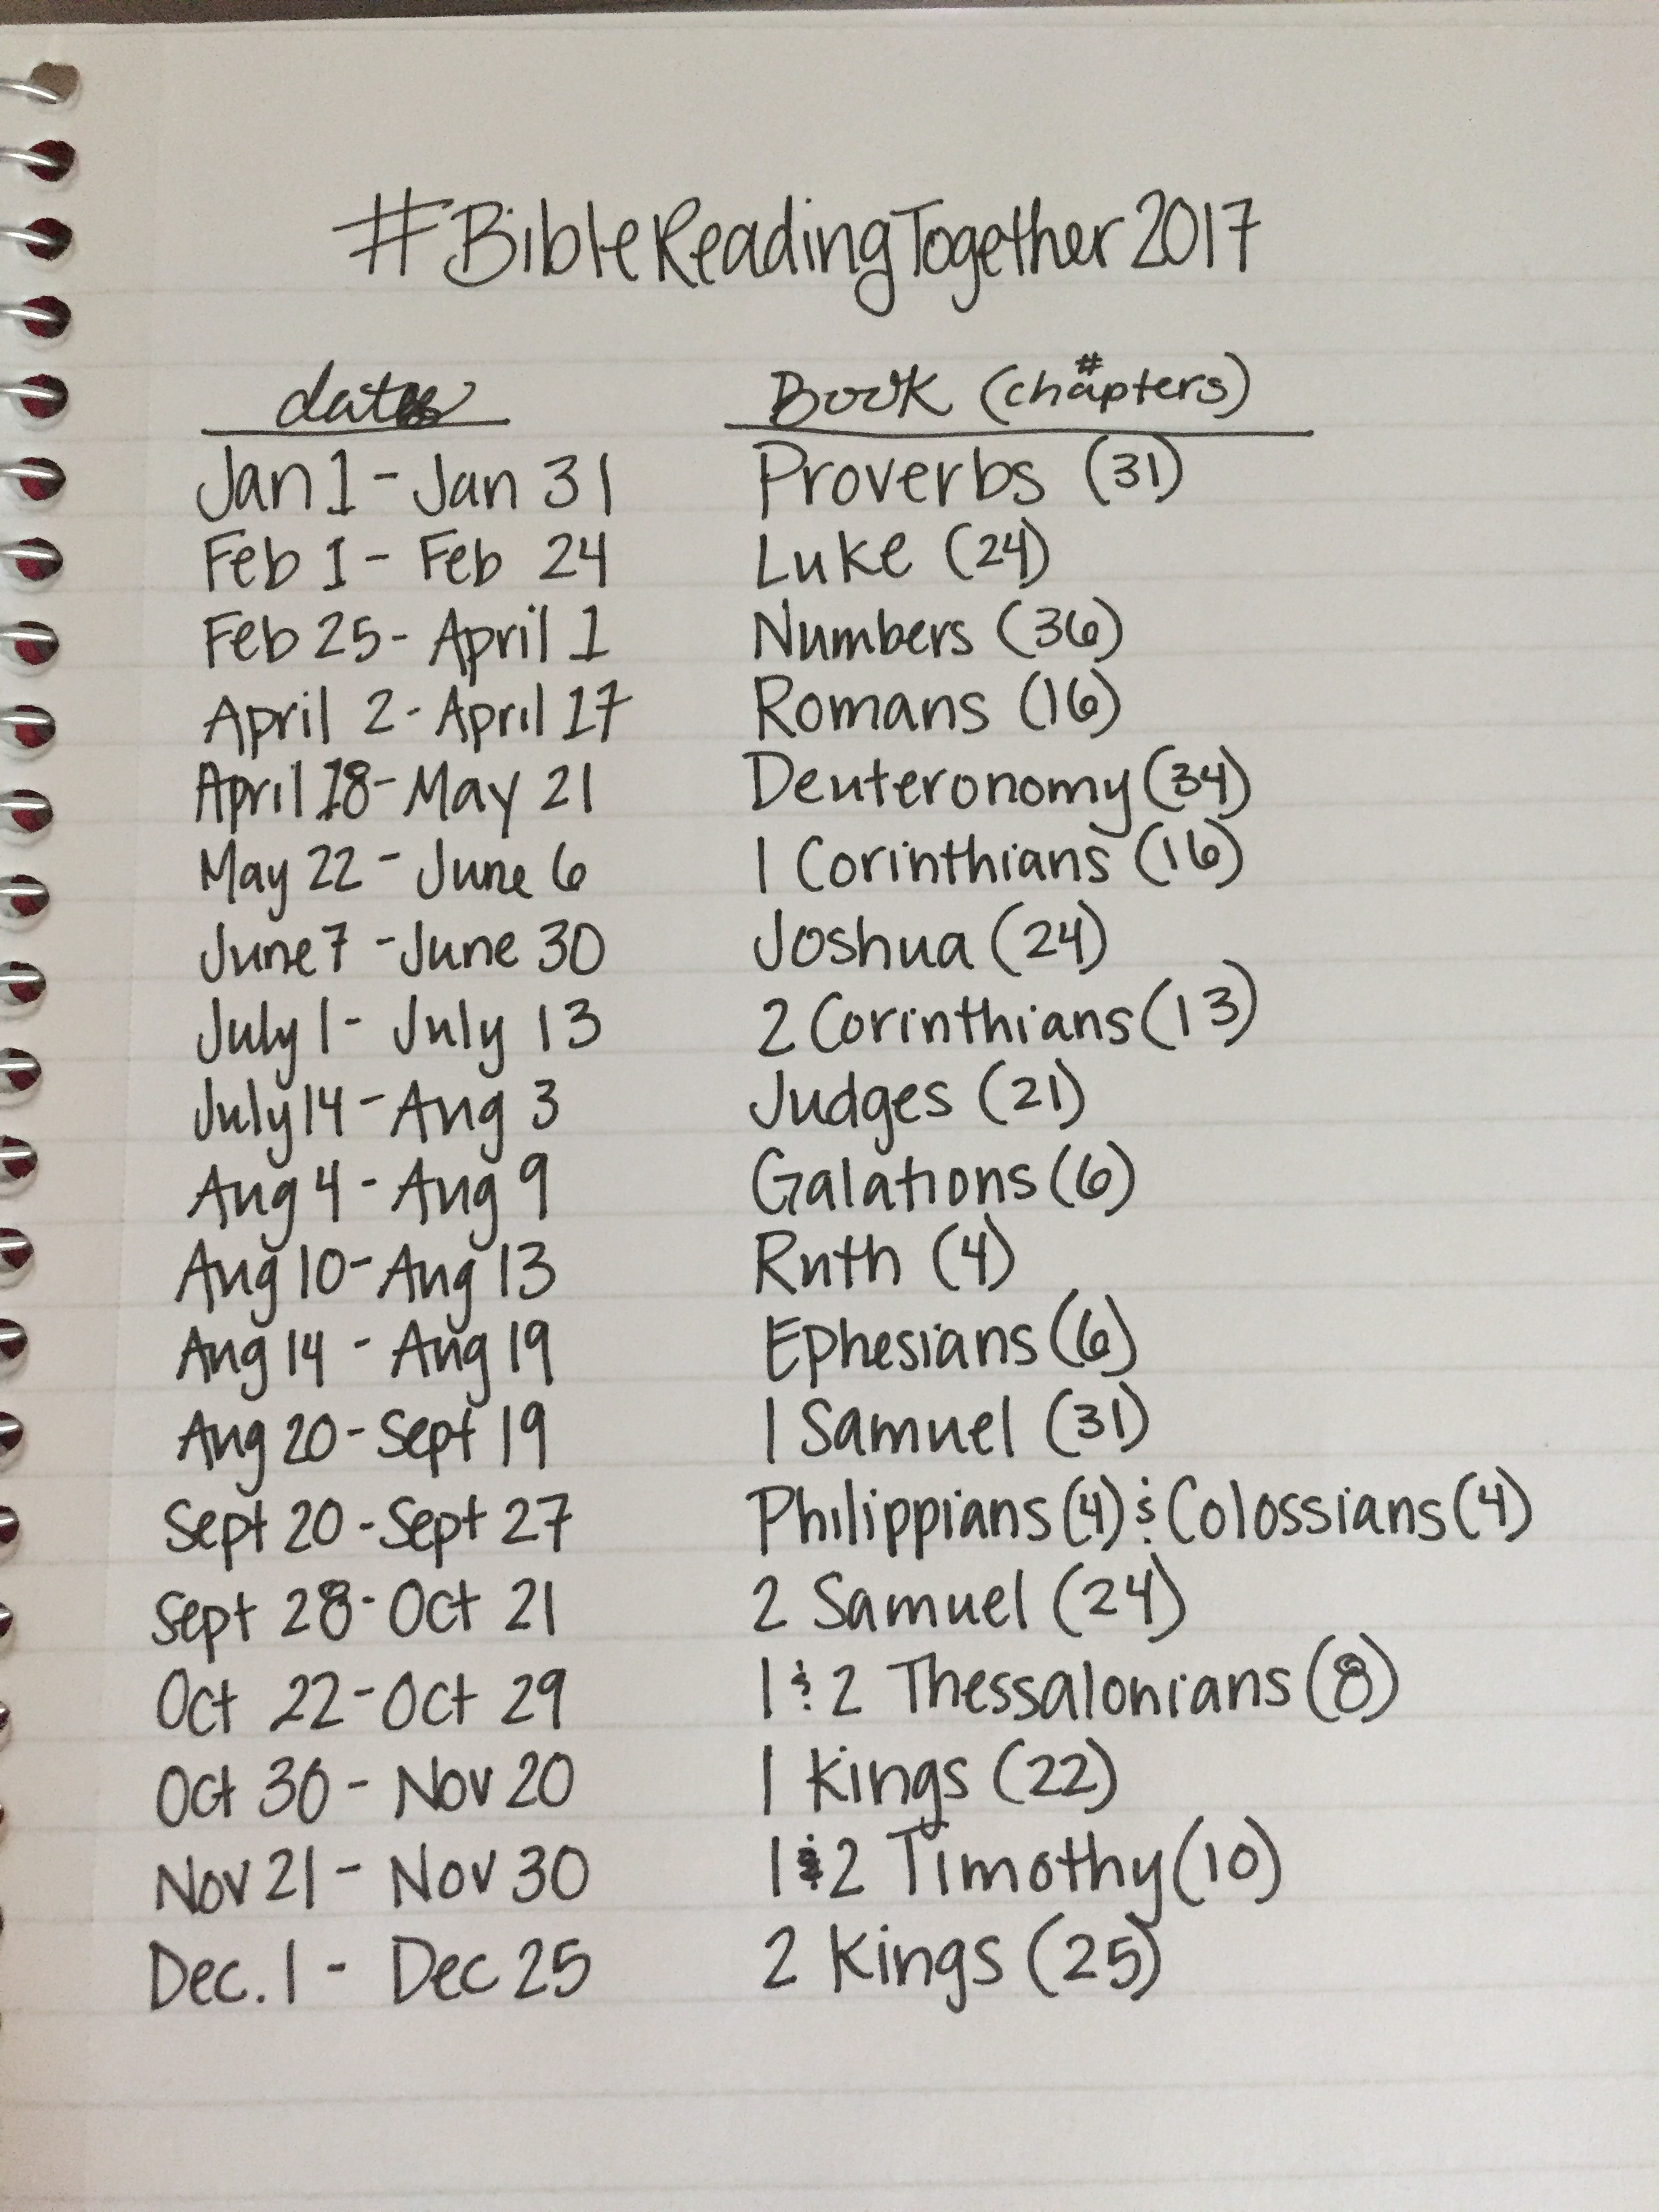 #BibleReadingTogether2017
dates Book (# chapters)
Jan 1 - Jan 31 Proverbs (31)
Feb 1 - Feb 24 Luke (24)
Feb 25 - April 1 Numbers (36)
April 2 - April 17 Romans (16)
April 18 - May 21 Deuteronomy (34)
May 22 - June 6 1 Corinthians (16)
June 7 - June 30 Joshua (24)
July 1 - July 13 2 Corinthians (13)
July 14 - Aug 3 Judges (21)
Aug 4 - Aug 9 Galations (6)
Aug 10 - Aug 13 Ruth (4)
Aug 14 - Aug 19 Ephesians (6)
Aug 20 - Sept 19 1 Samuel (31)
Sept 20 - Sept 27 Philippians (4) & Colossians (4)
Sept 28 - Oct 21 2 Samuel (24)
Oct 22 - Oct 29 1 & 2 Thessalonians (8)
Oct 30 - Nov 20 1 Kings (22)
Nov 21 - Nov 30 1 & 2 Timothy (10)
Dec. 1 - Dec 25 2 Kings (25)